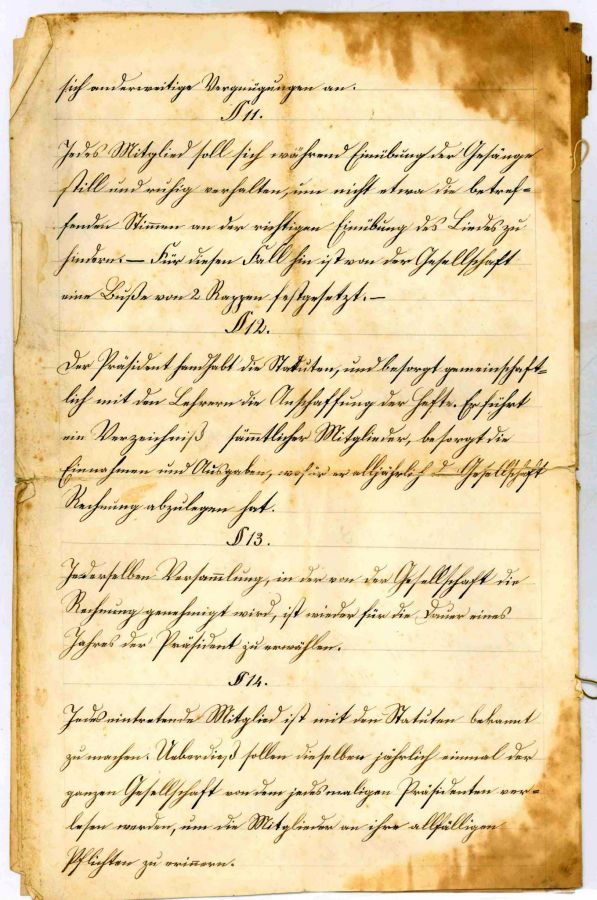 sich anderweitige Vergnügungen an.
§ 11.
Jedes Mitglied soll sich während Einübung der Gesänge
still und ruhig verhalten, um nicht etwa die betref-
fenden Stimmen an der richtigen Einübung des Liedes zu
hindern. — Für diesen Fall hin ist von der Gesellschaft
eine Buße von 2 Rappen festgesetzt. —
§ 12.
Der Präsident handhabt die Statuten, und besorgt gemeinschaft-
lich mit den Lehrern die Anschaffung der Hefte. Er führt
ein Verzeichniß sämmtlicher Mitglieder, besorgt die
Einnahmen und Ausgaben, wofür er alljährlich d Gesellschaft
Rechnung abzulegen hat.
§ 13.
In derselben Versammlung, in der von der Gesellschaft die
Rechnung genehmigt wird, ist wieder für die Dauer eines
Jahres der Präsident zu erwählen.
§ 14.
Jedes eintretende Mitglied ist mit den Statuten bekannt
zu machen. Ueberdieß sollen dieselben jährlich einmal der
ganzen Gesellschaft von dem jedesmaligen Präsidenten ver-
lesen werden, um die Mitglieder an ihre allfälligen
Pflichten zu erinnern.